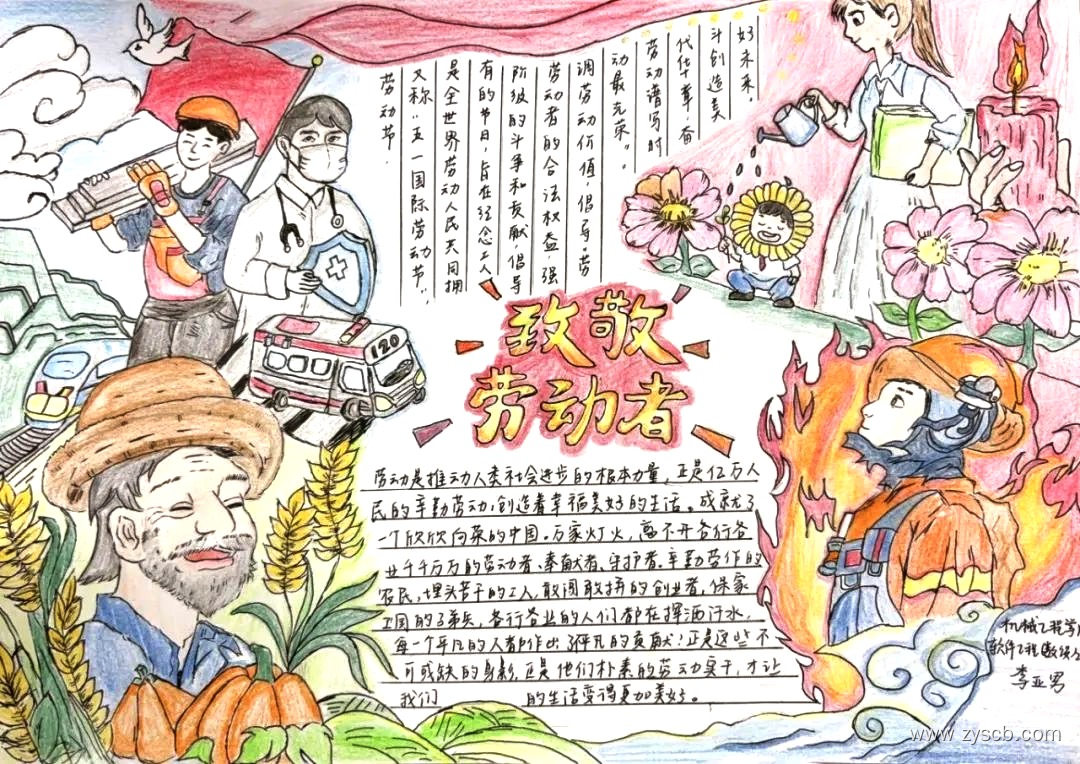 劳动节.
又称“五一国际劳动节”,
是全世界劳动人民共同拥
有的节日,旨在纪念工人
阶级的斗争和贡献,倡导
劳动者的合法权益,强
调劳动价值,倡导“劳
动最光荣”。
劳动谱写时
代华章,奋
斗创造美
好未来。
120
致敬
劳动者
劳动是推动人类社会进步的根本力量,正是亿万人
民的辛勤劳动,创造着幸福美好的生活。成就了
一个欣欣向荣的中国。万家灯火,离不开各行各
业千千万万的劳动者、奉献者、守护者,辛勤劳作的
农民,埋头苦干的工人,敢闯敢拼的创业者,保家
卫国的子弟兵,各行各业的人们都在挥洒汗水,
每一个平凡的人都作出了不平凡的贡献!正是这些不
可或缺的身影,正是他们朴素的劳动实干,才让
我们 的生活变得更加美好。
机械工程学
软件工程
李亚男
www.zyscb.com